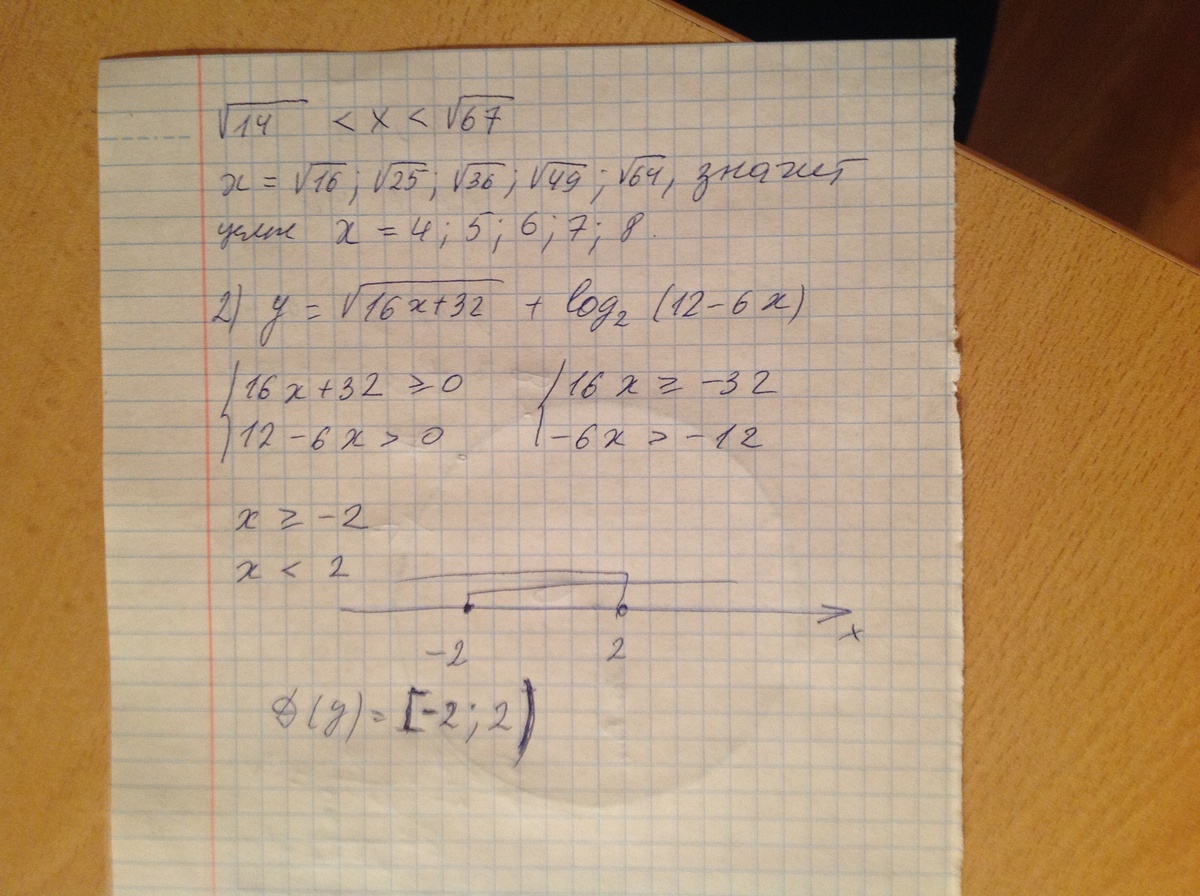 √14 < x < √67
x = √16; √25; √36; √49; √64, значит
целые x = 4; 5; 6; 7; 8.
2) y = √(16x+32) + log₂ (12-6x)
{16x+32 ≥ 0 {16x ≥ -32
{12-6x > 0 {-6x > -12
x ≥ -2
x < 2
-2 2 x
D(y) = [-2; 2)